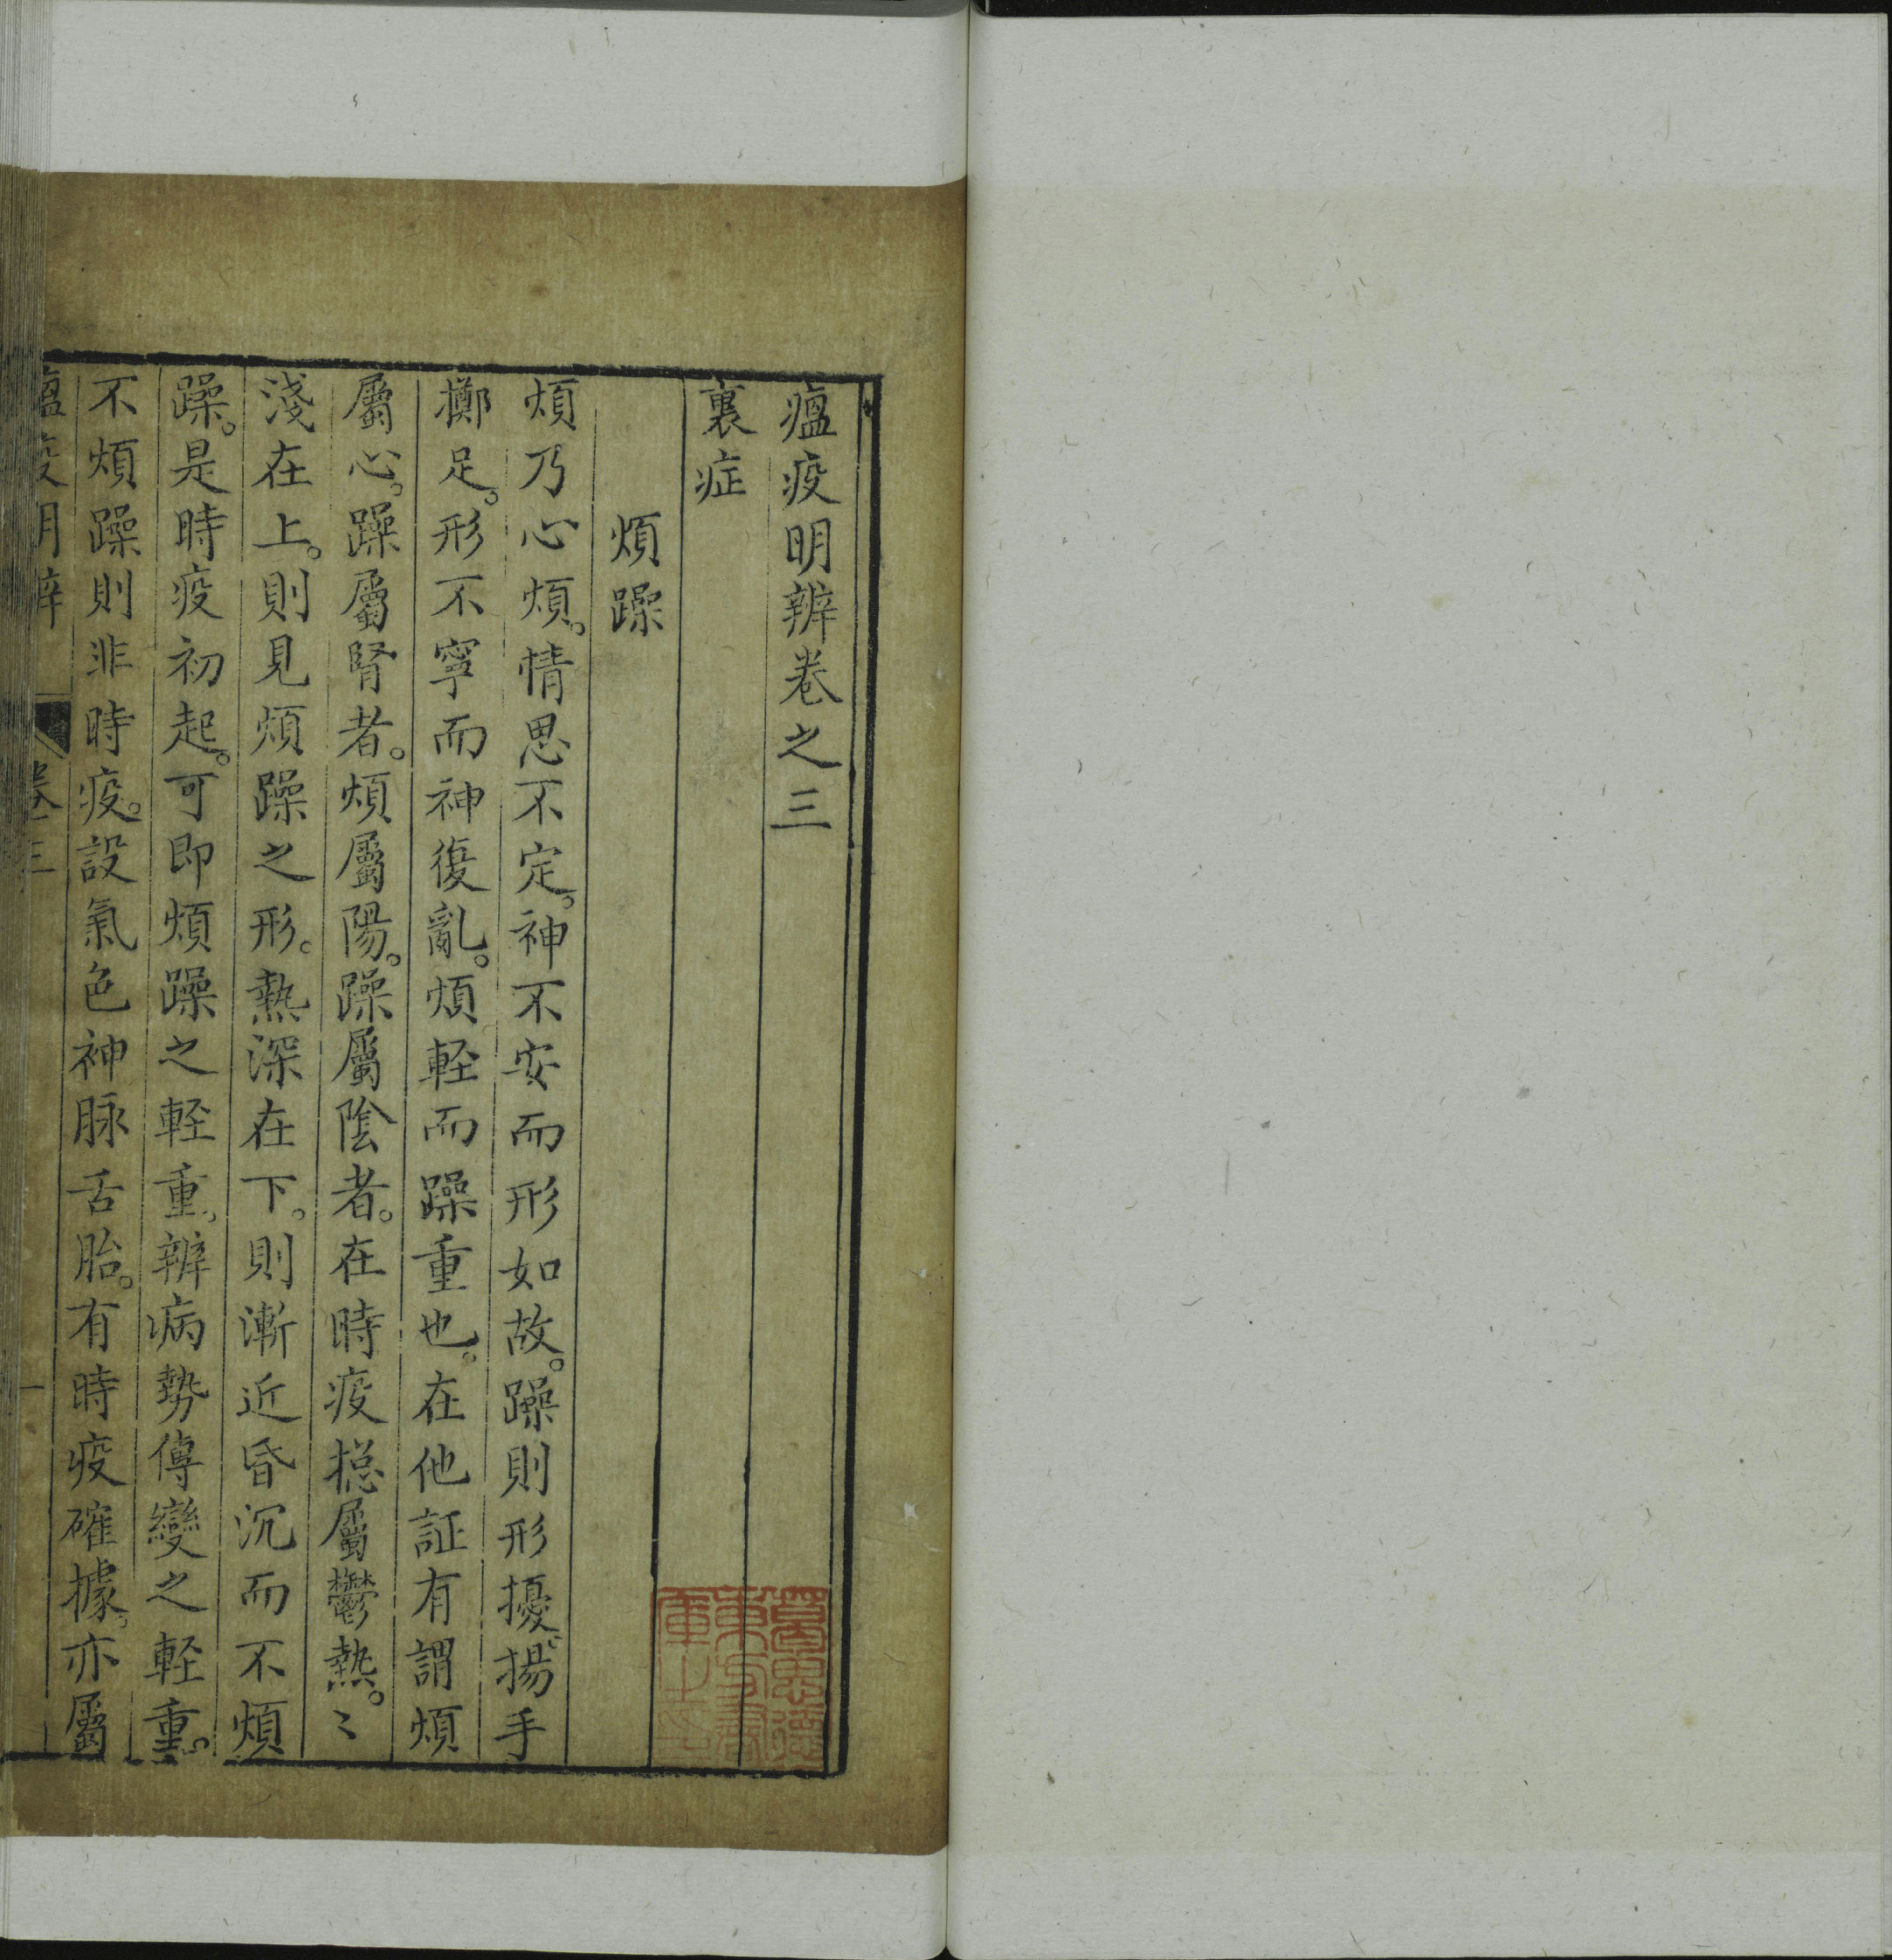 瘟疫明辨卷之三
裏症
煩躁
煩乃心煩。情思不定。神不安而形如故。躁則形擾。揚手
擲足。形不寧而神復亂。煩軽而躁重也。在他証有謂煩
屬心。躁屬腎者。煩屬陽。躁屬陰者。在時疫揔屬鬱熱。〻
淺在上。則見煩躁之形。熱深在下。則漸近昏沉而不煩
躁。是時疫初起。可即煩躁之軽重。辨病勢傳變之軽重。
不煩躁則非時疫。設氣色神脉舌胎。有時疫確據。亦屬
瘟疫明辨 卷三 一